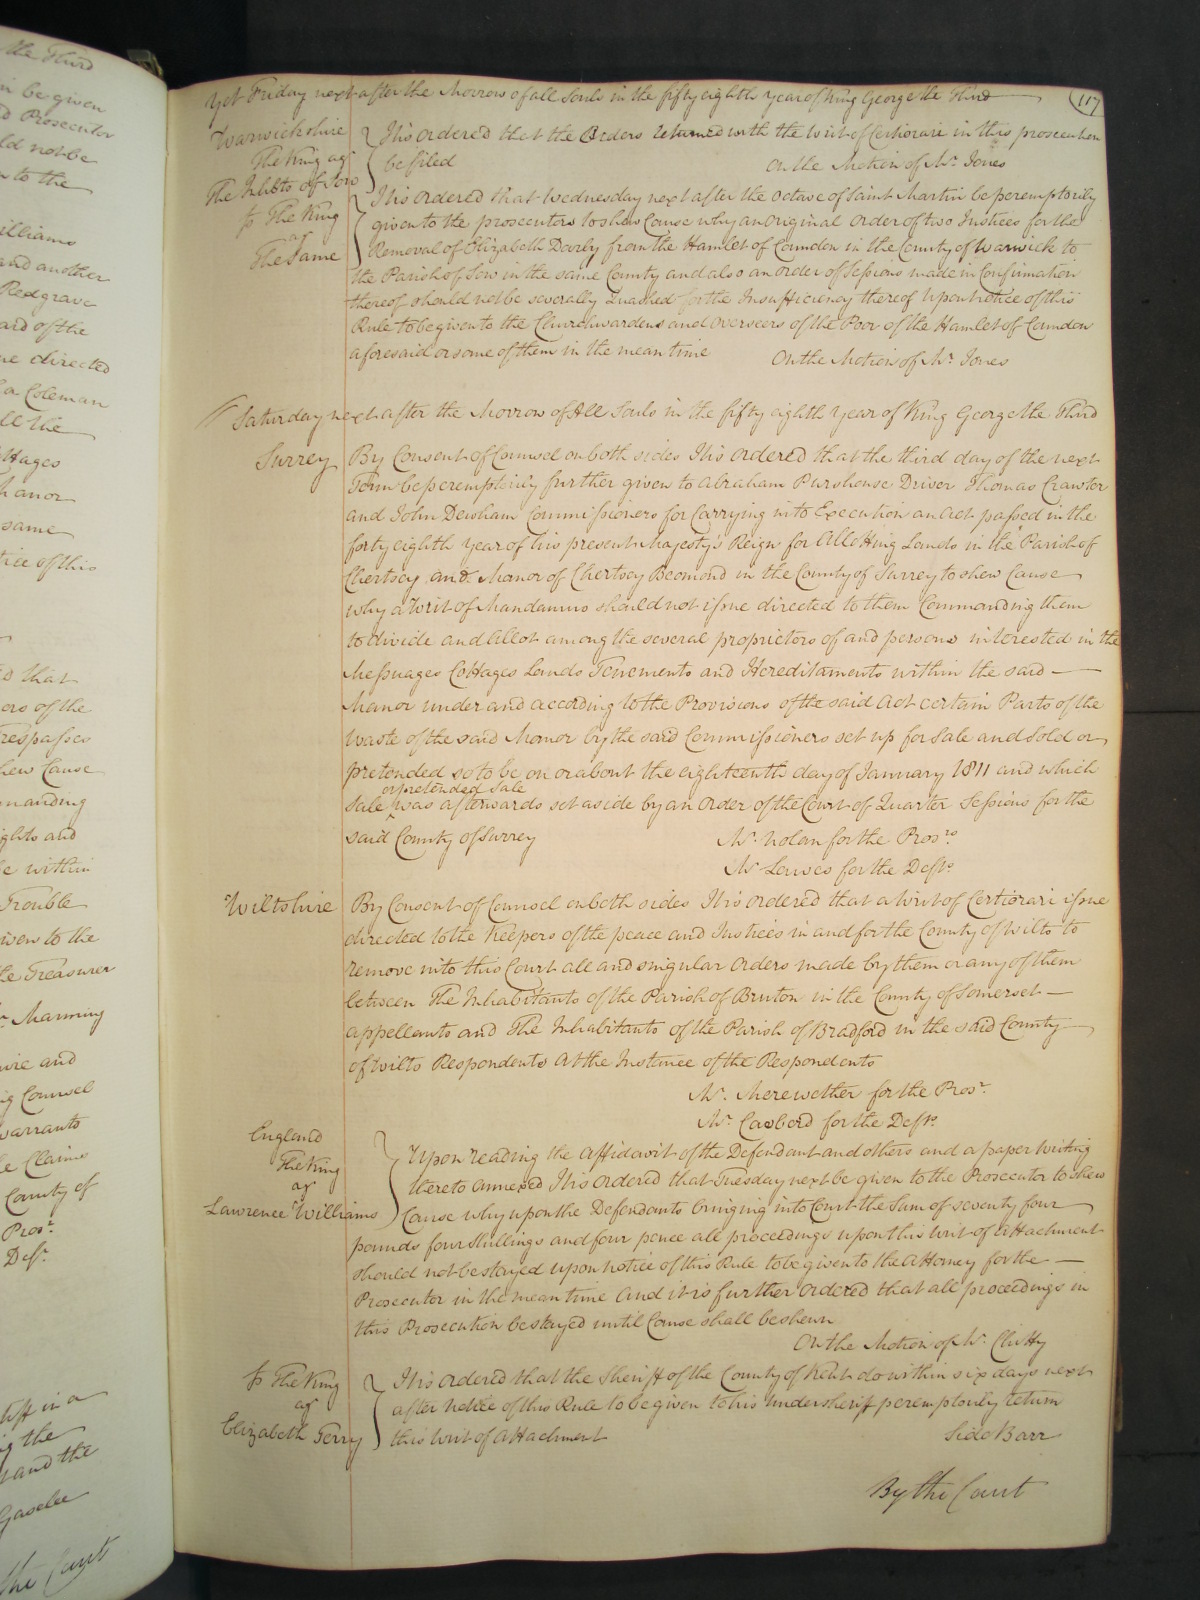 117
Yet Friday next after the Morrow of all Souls in the fifty eighth year of King George the Third
Warwickshire
The King agt
The Inhbts of Sow
It is ordered that the Orders returned with the Writ of Certiorari in this prosecution
be filed On the Motion of Mr. Jones
The King
agt
The Same
It is ordered that Wednesday next after the Octave of Saint Martin be peremptorily
given to the prosecutors to shew Cause why an Original Order of two Justices for the
Removal of Elizabeth Darby from the Hamlet of Coundon in the County of Warwick to
the Parish of Sow in the same County and also an order of Sessions made in Confirmation
thereof should not be severally Quashed for the Insufficiency thereof Upon notice of this
Rule to be given to the Churchwardens and Overseers of the Poor of the Hamlet of Coundon
aforesaid or some of them in the mean time On the Motion of Mr. Jones
Saturday next after the Morrow of All Souls in the fifty eighth Year of King George the Third
Surrey
By Consent of Counsel on both sides It is ordered that the third day of the next
Term be peremptorily further given to Abraham Purshouse Driver Thomas Crawter
and John Dewham Commissioners for Carrying into Execution an Act passed in the
forty eighth Year of his present Majesty's Reign for Allotting Lands in the Parish of
Chertsey and Manor of Chertsey Beomond in the County of Surrey to shew Cause
why a Writ of Mandamus should not issue directed to them Commanding them
to divide and Allot among the several proprietors of and persons interested in the
Messuages Cottages Lands Tenements and Hereditaments within the said
Manor under and according to the Provisions of the said Act certain Parts of the
Waste of the said Manor by the said Commissioners set up for Sale and Sold or
pretended so to be on or about the eighteenth day of January 1811 and which
or pretended Sale
Sale was afterwards set aside by an Order of the Court of Quarter Sessions for the
said County of Surrey Mr. Nolan for the Prosrs
Mr Lawes for the Defts
Wiltshire
By Consent of Counsel on both sides It is ordered that a Writ of Certiorari issue
directed to the Keepers of the peace and Justices in and for the County of Wilts to
remove into this Court all and singular Orders made by them or any of them
between The Inhabitants of the Parish of Bruton in the County of Somerset
appellants and The Inhabitants of the Parish of Bradford in the said County
of Wilts Respondents At the Instance of the Respondents
Mr. Merewether for the Prosr.
Mr. Casberd for the Deft.
England
The King
agt
Lawrence Williams
Upon reading the Affidavit of the Defendant and others and a paper Writing
thereto annexed It is ordered that Tuesday next be given to the Prosecutor to shew
Cause why upon the Defendants bringing into Court the Sum of seventy four
pounds four shillings and four pence all proceedings upon this Writ of Attachment
should not be stayed upon notice of this Rule to be given to the Attorney for the
Prosecutor in the mean time And it is further Ordered that all proceedings in
this Prosecution be stayed until Cause shall be shewn
On the Motion of Mr. Chitty
The King
agt
Elizabeth Terry
It is ordered that the Sheriff of the County of Kent do within six days next
after notice of this Rule to be given to his undersheriff peremptorily return
this Writ of Attachment Side Barr
By the Court